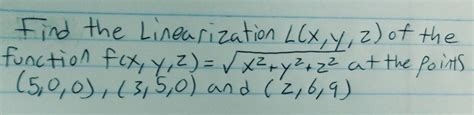 Find the Linearization L(x,y,z) of the
function f(x,y,z)=√x²+y²+z² at the points
(5,0,0), (3,5,0) and (2,6,9)